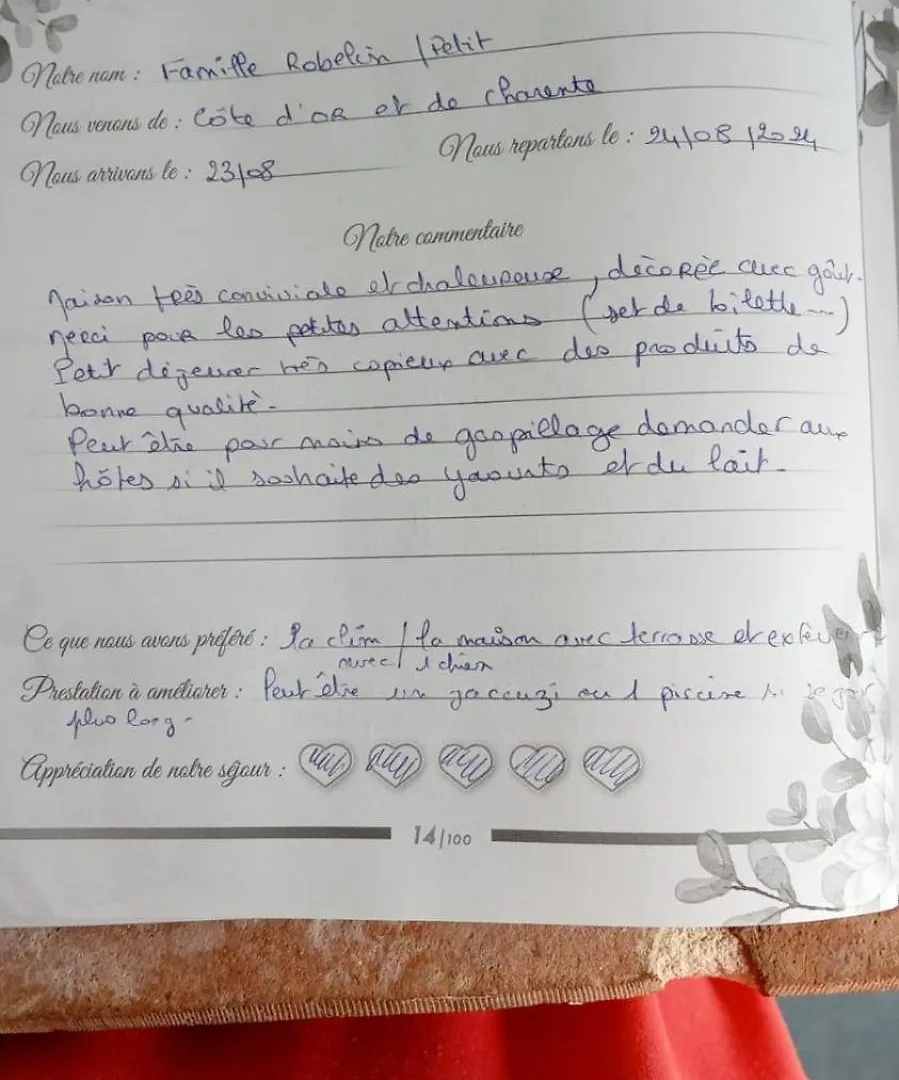 Notre nom : Famille Robelin / Petit
Nous venons de : Côte d'OR et de charente
Nous arrivons le : 23/08
Nous repartons le : 24/08/2024
Notre commentaire
Maison très conviviale et chaleureuse, décorée avec goût.
Merci pour les petites attentions (set de toilette ...)
Petit déjeuner très copieux avec des produits de
bonne qualité.
Peut être pour moins de gaspillage demander aux
hôtes si il souhaite des yaourts et du lait.
Ce que nous avons préféré : la clim / la maison avec terrasse et
avec 1 chien
Prestation à améliorer : Peut être un jaccuzi ou 1 piscine
plus long.
Appréciation de notre séjour :
14/100